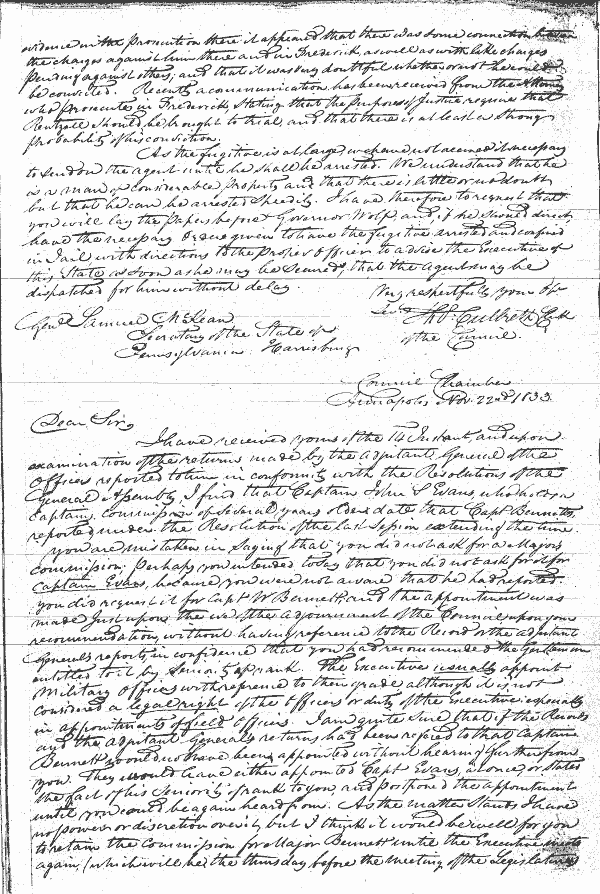 evidence in the Prosecution there it appeared that there was some connection between
the charges against him there and in Frederick, as well as with like charges
pending against others; and that it was very doubtful whether or not he could
be convicted. Recently a communication has been received from the Attorney
who prosecutes in Frederick, Stating that the purposes of Justice requires that
should be brought to trial, and that there is at least a strong
probability of his conviction.
As the fugitive is at large, we have not deemed it necessary
to send on the agent until he shall be arrested. We understand that he
is a man of considerable Property and that there is little or no doubt
but that he can be arrested Speedily. I have therefore to request that
you will lay the Papers before Governor Wolf, and, if he should direct,
have the necessary Orders given to have the fugitive arrested and confined
in Jail with directions to the Proper Officer to advise the Executive of
this State as soon as he may be Secured, that the Agent may be
dispatched for him without delay.
Very respectfully your Obt
Servt Thos. Culbreth Clk
of the Council.
Genl. Samuel McKean
Secretary of the State of
Pennsylvania Harrisburg
Council Chamber
Annapolis Nov. 22nd 1833
Dear Sir,
I have received yours of the 14 Instant, and upon
examination of the returns made by the Adjutant General of the
Officers reported to him in conformity with the Resolutions of the
General Assembly, I find that Captain John S Evans, who holds a
Captains commission of Several years older date than Capt Bennetts,
reported under the Resolution of the last Session extending the time.
you are mistaken in saying that you did not ask for a Majors
commission. Perhaps you intended to say that you did not ask for it for
Captain Evans, because you were not aware that he had reported.
you did request it for Capt W Bennett, and the appointment was
made just upon the eve of the adjournment of the Council upon your
recommendation, without having reference to the Record or the adjutant
Generals reports, in confidence that you had recommended the Gentleman
entitled to it by Seniority of rank. The Executive usually appoint
Military Officers with reference to their grade although it is not
considered a legal right of the Officers or duty of the Executive especially
in appointments of field Officers. I am quite Sure that if the Records
and the adjutant Generals returns had been referred to that Captain
Bennett would not have been appointed without hearing further from
you. They would have either appointed Capt Evans, at once, or stated
the fact of his Seniority of rank to you, and postponed the appointment
until you could be again heard from. As the matter Stands I have
no power or discretion over it, but I think it would be well for you
to retain the Commission for Major Bennett until the Executive meets
again, (which will be the thursday before the meeting of the Legislature)